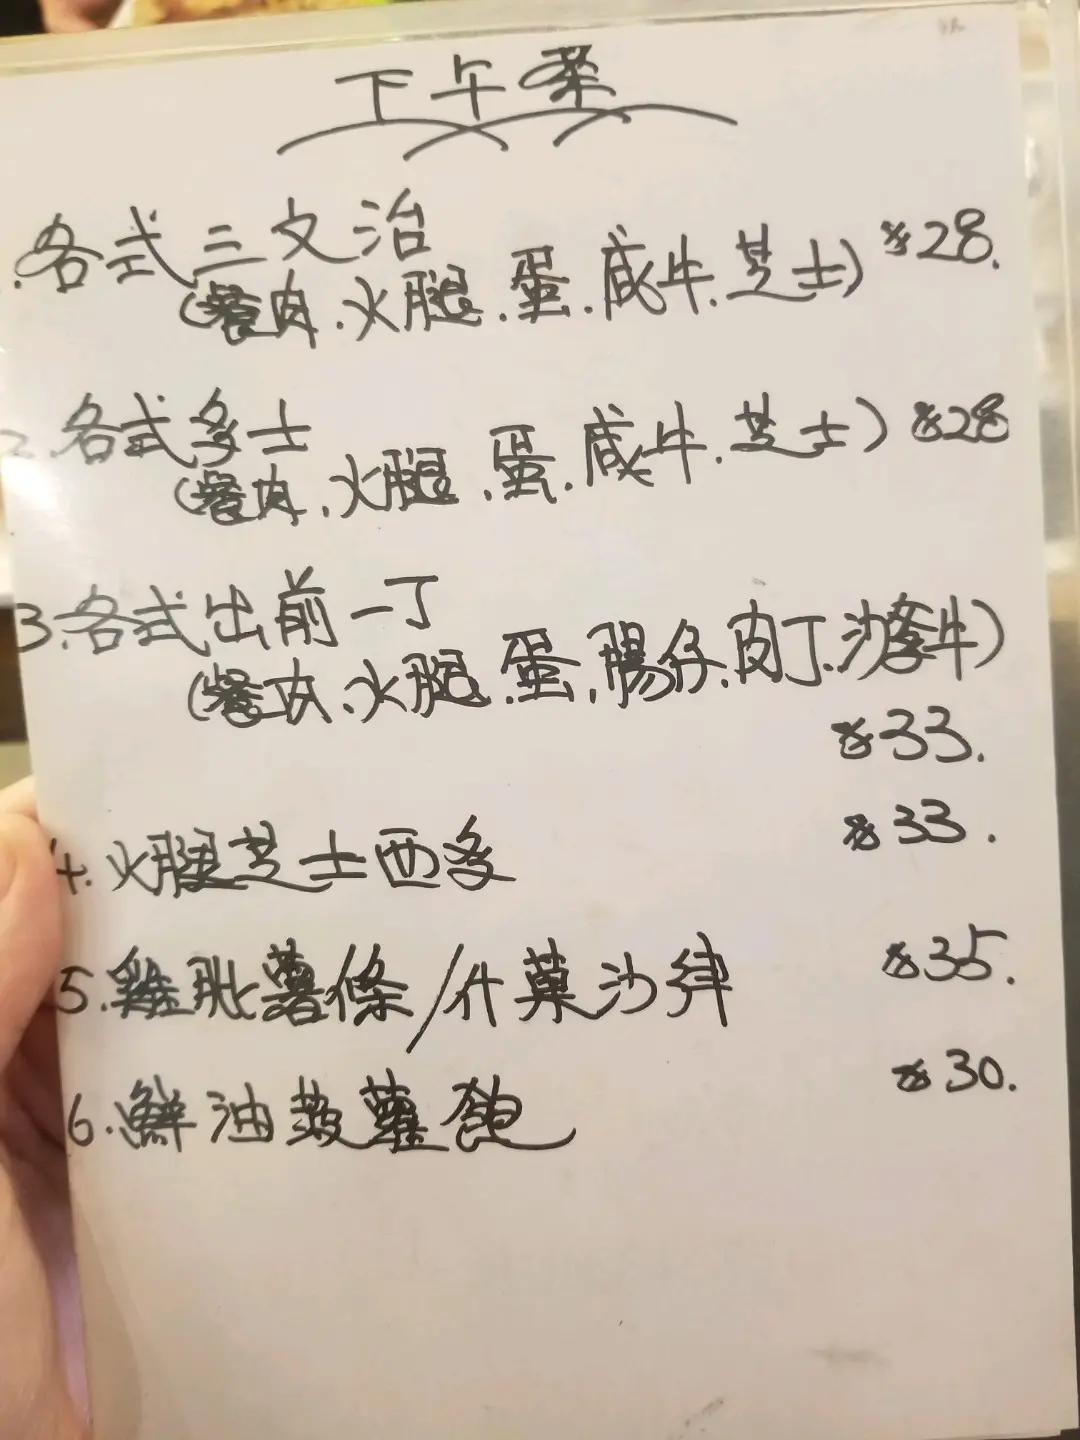 下午茶
1. 各式三文治
(餐肉、火腿、蛋、咸牛、芝士) $28.
2. 各式多士
(餐肉、火腿、蛋、咸牛、芝士) $28
3. 各式出前一丁
(餐肉、火腿、蛋、腸仔、肉丁、沙爹牛)
$33.
4. 火腿芝士西多 $33.
5. 雞肶薯條/什菓沙律 $35.
6. 鮮油菠蘿飽 $30.